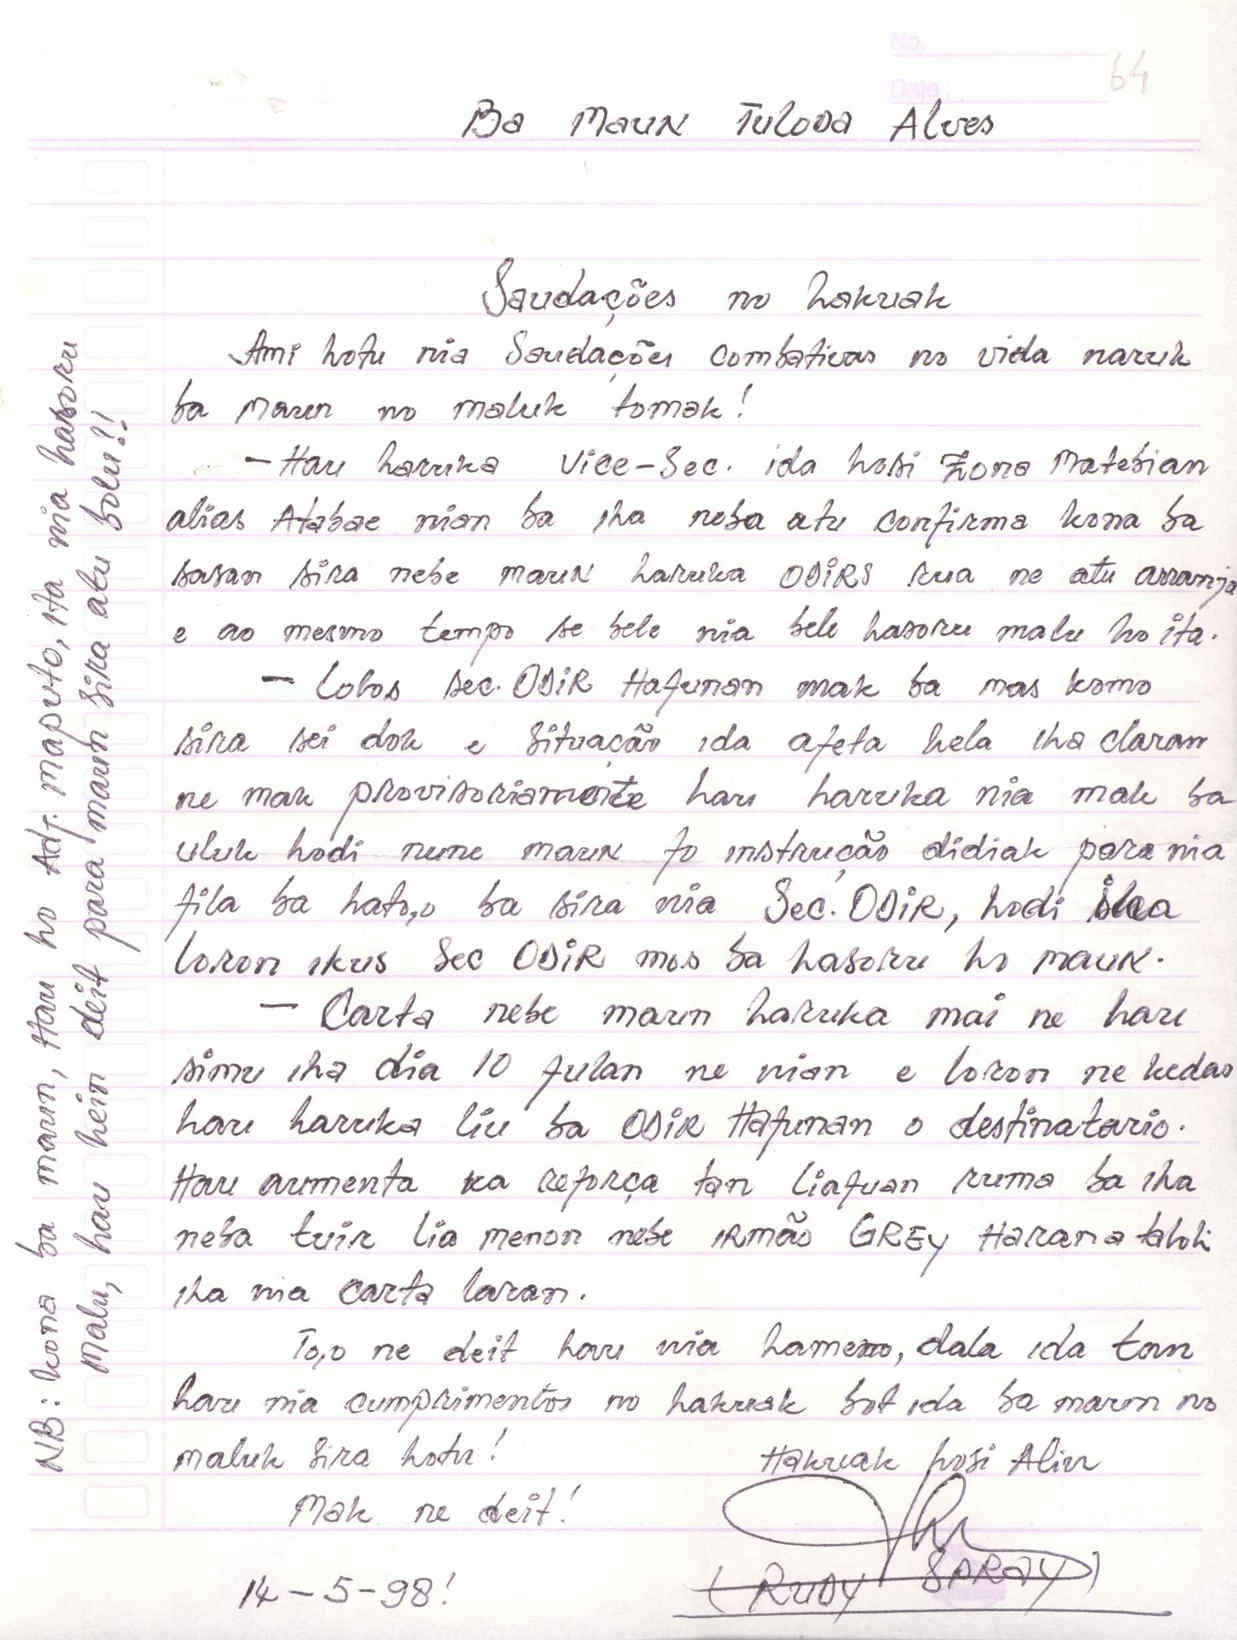 No.
64
Date:
Ba Maun Tuloda Alves
Saudações no hakuak
Ami hotu nia Saudações combativas no vida naruk
ba maun no maluk tomak!
- Hau haruka Vice-Sec. ida hosi Zona Matebian
alias Atabae nian ba iha neba atu confirma kona ba
sasan sira nebe maun haruka ODIRS rua ne atu arranja
e ao mesmo tempo se bele nia bele hasoru malu ho ita.
- Lolos sec. ODIR Hafunan mak ba mas komo
sira sei dok e situação ida afeta hela iha claran
ne mak provisoriamente hau haruka nia mak ba
uluk hodi nune maun fo instrução didiak para nia
fila ba hato,o ba sira nia Sec. ODIR, hodi iha
loron ikus Sec ODIR mos ba hasoru ho maun.
- Carta nebe maun haruka mai ne hau
simu iha dia 10 fulan ne nian e loron ne kedas
hau haruka liu ba ODIR Hafunan o destinatario.
Hau aumenta ka reforça tan liafuan ruma ba iha
neba tuir lia menon nebe irmão GREY Harana
iha nia carta laran.
To,o ne deit hau nia hameno, dala ida tan
hau nia cumprimentos no hakuak bot ida ba maun no
maluk sira hotu!
Hakuak hosi Alin
Mak ne deit!
(RUDY SPRAY)
14-5-98!
NB: kona ba maun, Hau ho Adj. Maputo, ita nia hasoru
malu, hau hein deit para maun sira atu bolu!!